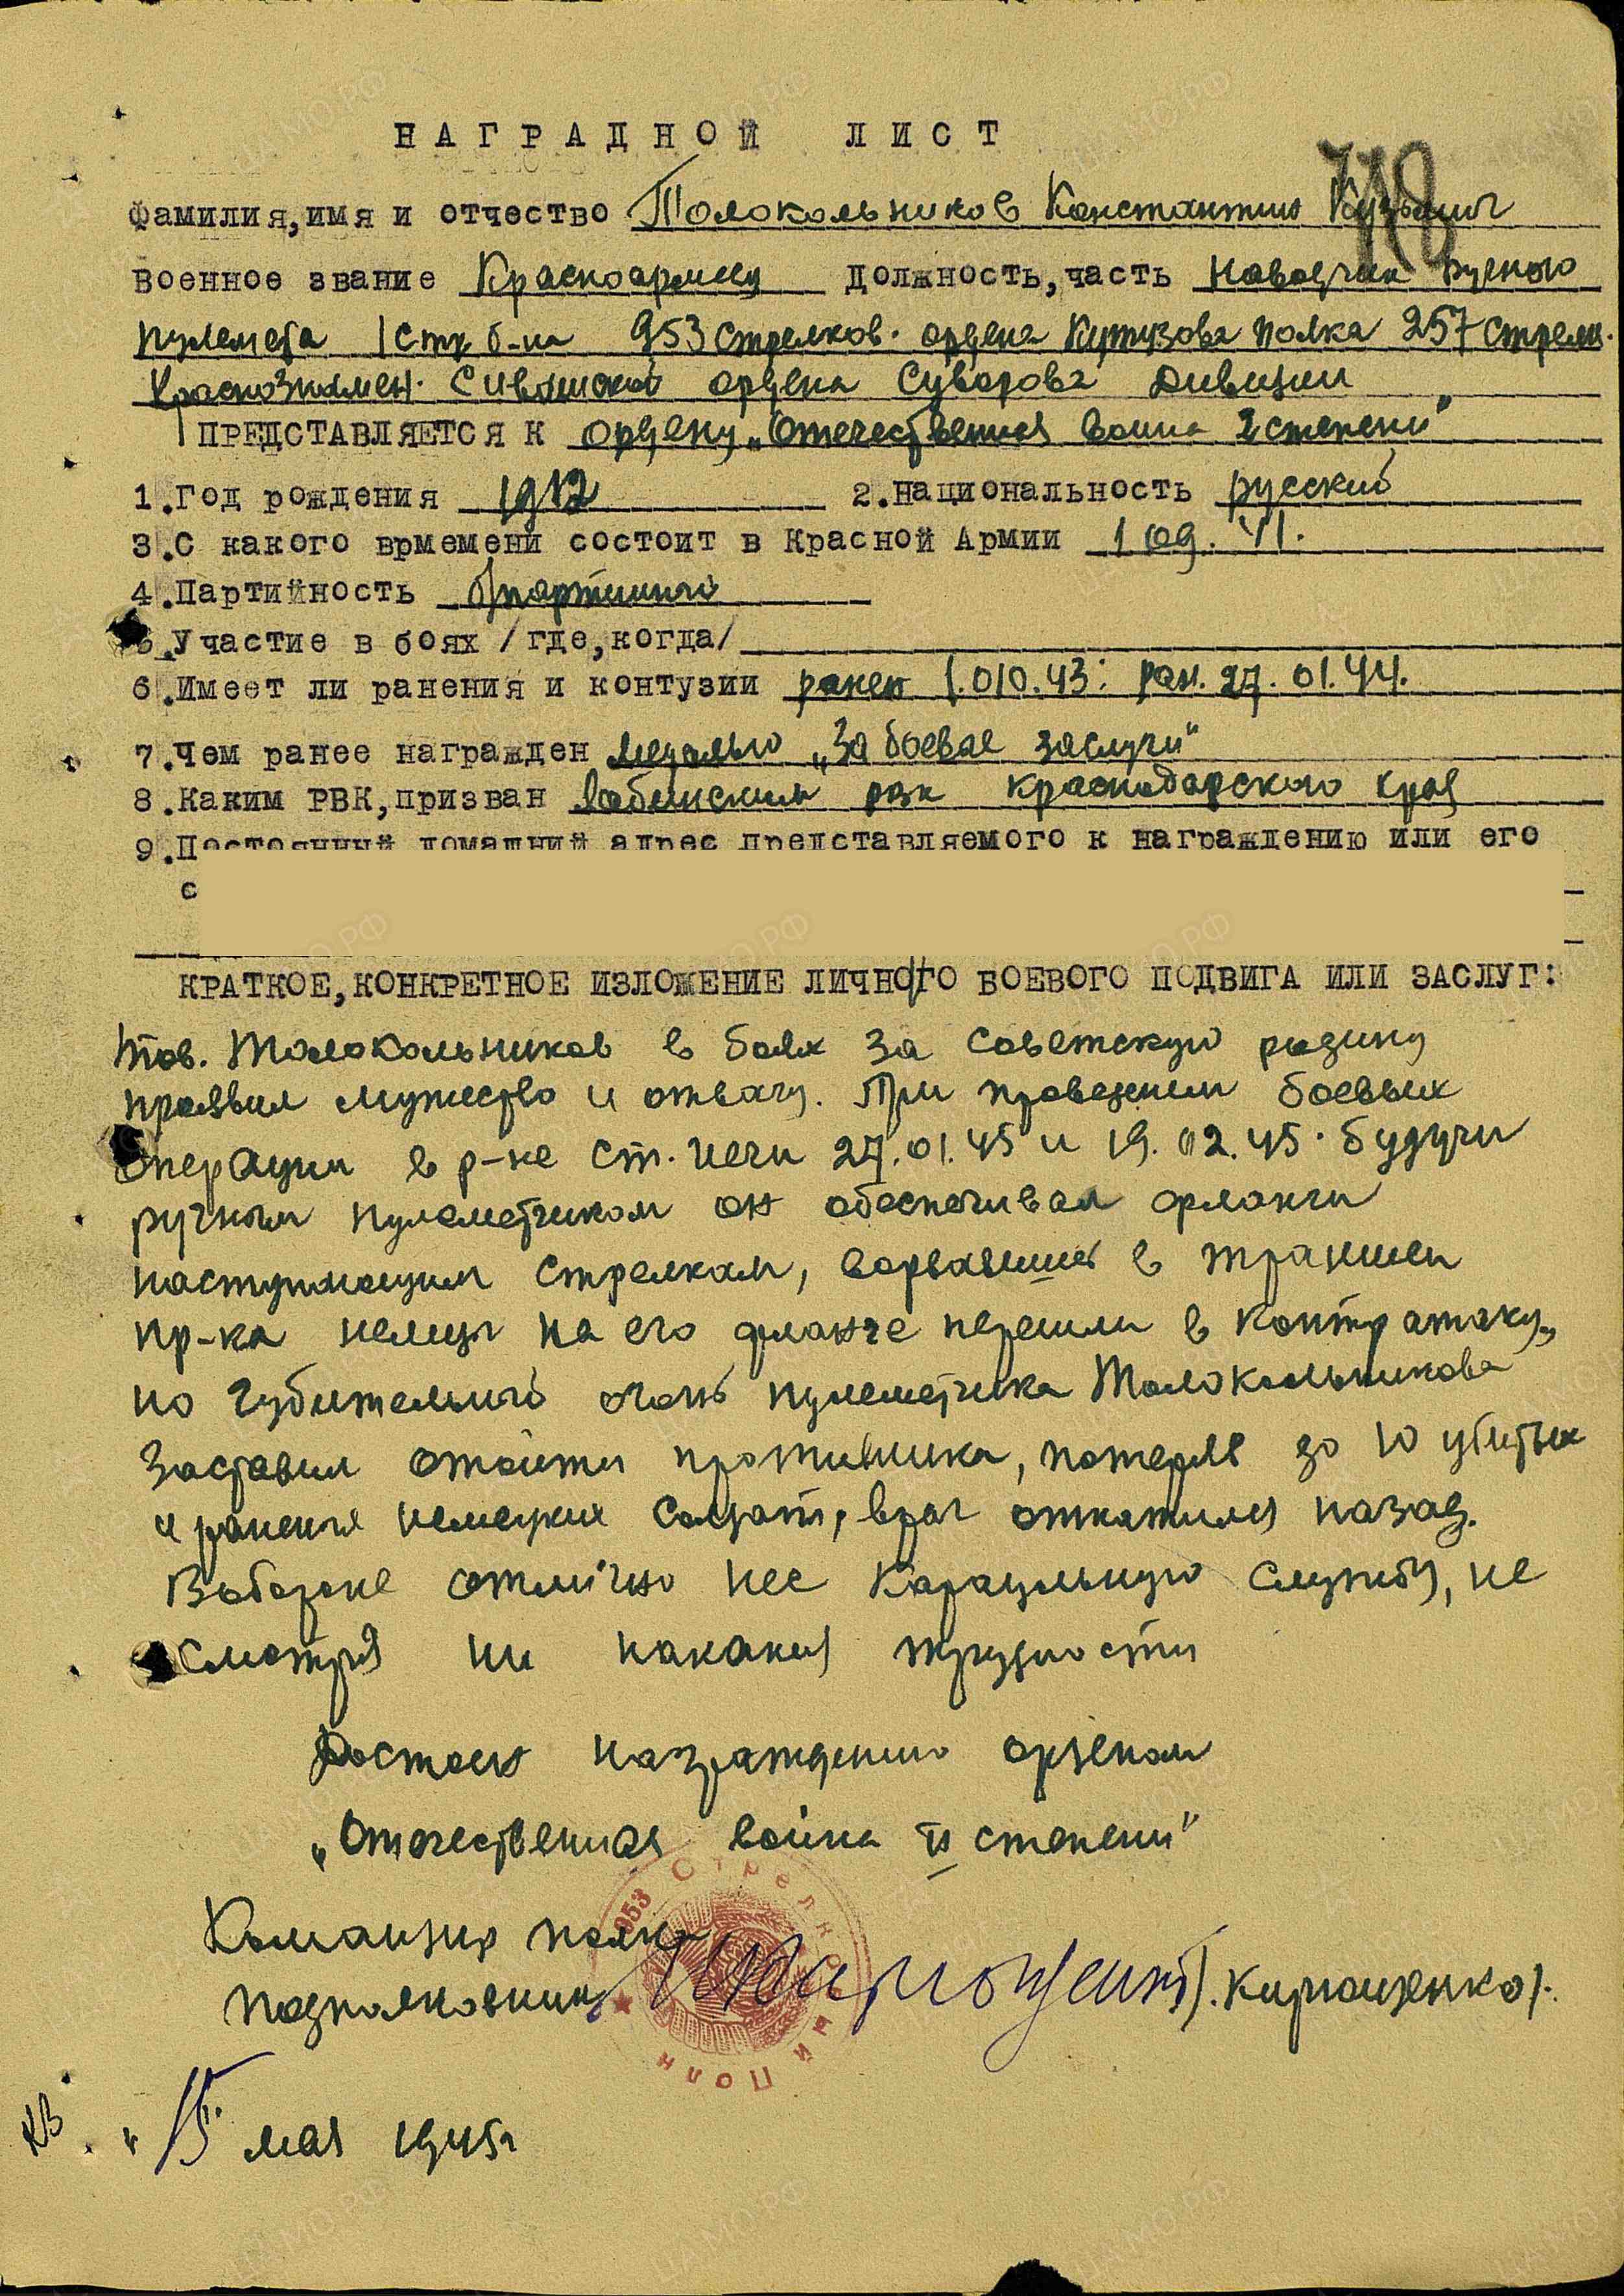 718
НАГРАДНОЙ ЛИСТ
Фамилия, имя и отчество Толокольников Константин Кузьмич
Военное звание Красноармеец Должность, часть Наводчик ручного
пулемета 1 стр б-на 953 стрелков. ордена Кутузова полка 257 стрелк.
Краснознамен. Сивашской ордена Суворова Дивизии
ПРЕДСТАВЛЯЕТСЯ К ордену „Отечественная война 2 степени"
1. Год рождения 1912 2. Национальность русский
3. С какого врмемени состоит в Красной Армии 1 09. 41.
4. Партийность б/партийный
5. Участие в боях /где, когда/
6. Имеет ли ранения и контузии ранен 1.010.43: ран. 27.01.44.
7. Чем ранее награжден медалью „За боевые заслуги"
8. Каким РВК, призван Лабинским рвк Краснодарского края
9. Постоянный домашний адрес представляемого к награждению или его
с
КРАТКОЕ, КОНКРЕТНОЕ ИЗЛОЖЕНИЕ ЛИЧНОГО БОЕВОГО ПОДВИГА ИЛИ ЗАСЛУГ:
Тов. Толокольников в боях за советскую родину
проявил мужество и отвагу. При проведении боевых
операции в р-не ст. Иечи 27.01.45 и 19.02.45. будучи
ручным пулеметчиком он обеспечивал фланги
наступающим стрелкам, ворвавшись в траншеи
пр-ка немцы на его фланге перешли в контратаку,
но губительный огонь пулеметчика Толокольникова
заставил отойти противника, потеряв до 10 убитых
и раненых немецких солдат, враг откатился назад.
В обороне отлично нес караульную службу, не
смотря ни накакия трудности
Достоин награждению орденом
„Отечественная война II степени"
Командир полка
подполковник /. Кирющенко /.
953 Стрелковый Полк
„15" мая 1945г